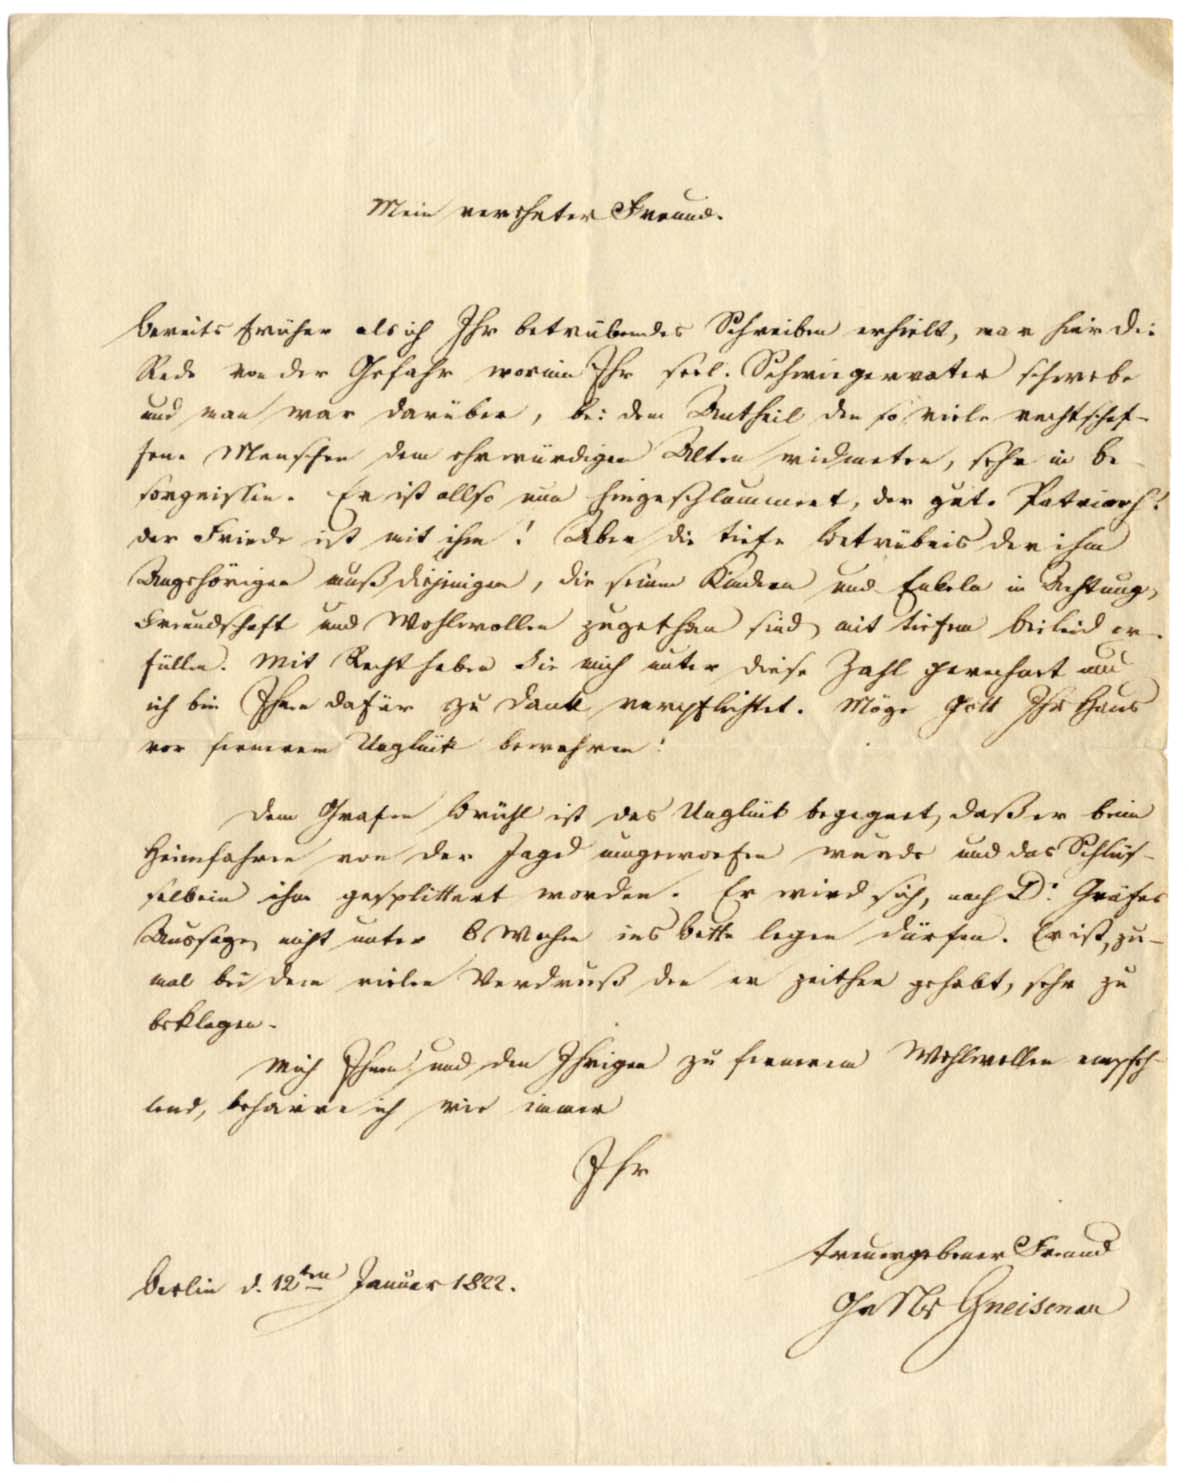 Mein verehrter Freund.
Bereits früher als ich Ihr betrübendes Schreiben erhielt, war hier die
Rede von der Gefahr worinn Ihr seel. Schwiegervater schwebe
und man war darüber, bei dem Antheil den so viele rechtschaf-
fene Menschen dem ehrwürdigen Alten widmeten, sehr in Be-
sorgnissen. Er ist allso nun hingeschlummert, der gute Patriarch!
der Friede ist mit ihm! Aber die tiefe Betrübnis der ihm
Angehörigen muß diejenigen, die seinen Kindern und Enkeln in Achtung,
Freundschaft und Wohlwollen zugethan sind, mit tiefem Beileid er-
füllen. Mit Recht haben Sie mich unter diese Zahl gerechnet und
ich bin Ihnen dafür zu Dank verpflichtet. Möge Gott Ihr Haus
vor fernerem Unglük bewahren!
Dem Grafen Brühl ist das Unglük begegnet, daß er beim
Heimfahren von der Jagd umgeworfen wurde und das Schlüs-
selbein ihm gesplittert worden. Er wird sich, nach Dr. Gräfes
Aussage, nicht unter 6 Wochen ins Bette legen dürfen. Er ist, zu-
mal bei dem vielen Verdruß den er zeither gehabt, sehr zu
beklagen.
Mich Ihnen und den Ihrigen zu fernerem Wohlwollen empfeh-
lend, beharre ich wie immer
Ihr
treuergebener Freund
Berlin d. 12ten Januar 1822.
Gneisenau